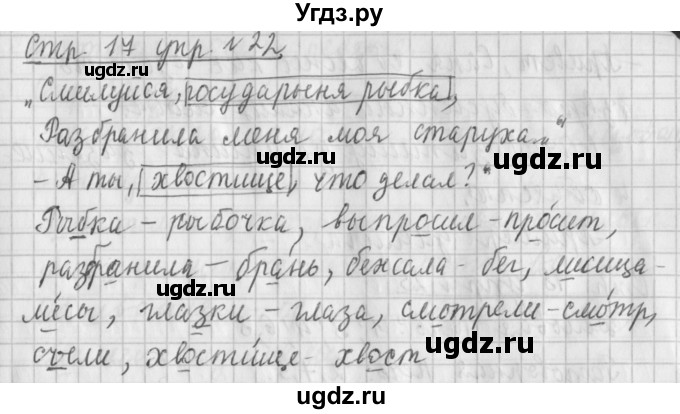 Угдз.ру
Стр. 17 упр. №22
gdz.ru
gdz.ru
„Смилуйся, государыня рыбка,
Разбранила меня моя старуха..."
gdz.ru
– А ты, хвостище, что делал?"
Рыбка – рыбочка, выпросил – просит,
gdz.ru
разбранила – брань, бежала – бег, лисица –
gdz.ru
лисы, глазки – глаза, смотрели – смотр,
съели, хвостище – хвост
gdz.ru
gdz.ru